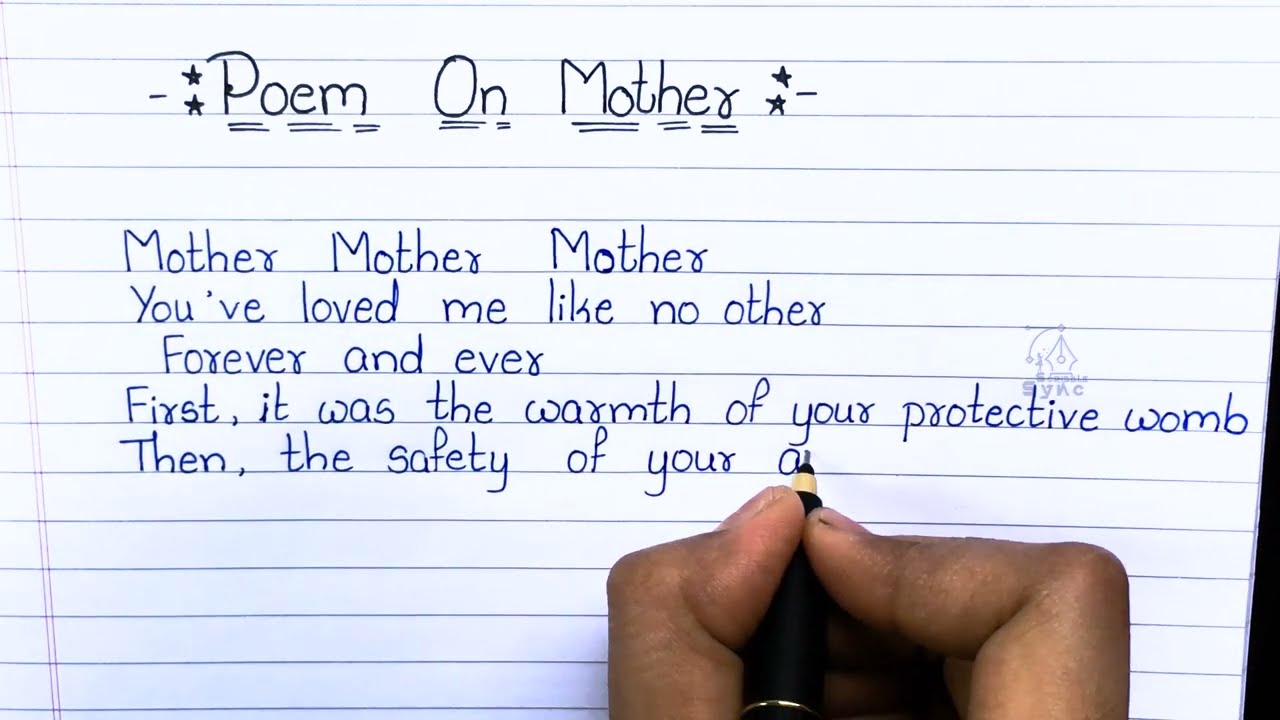 -: Poem On Mother :-
Mother Mother Mother
You've loved me like no other
Forever and ever
First, it was the warmth of your protective womb
Then, the safety of your a
Sync